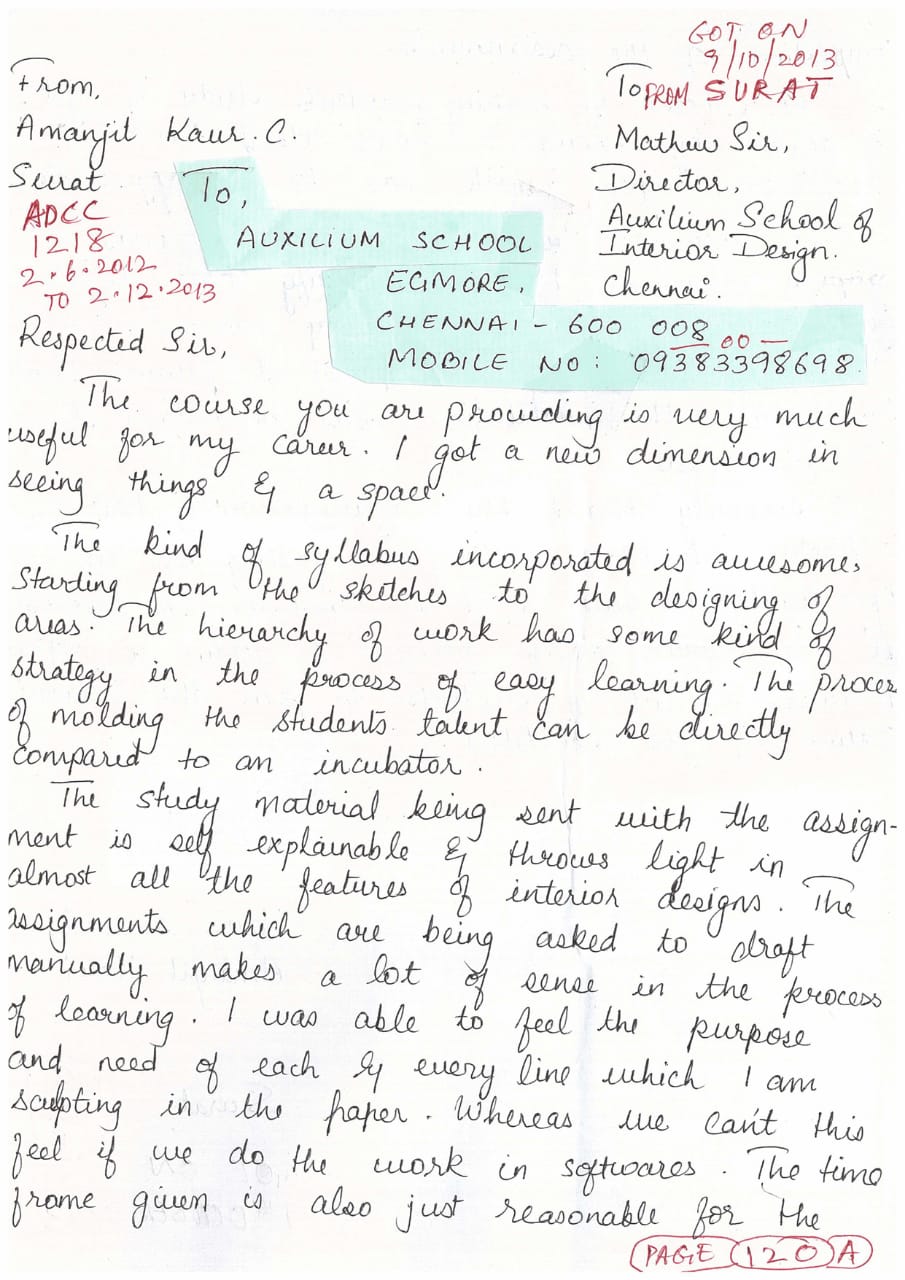 GOT ON
9/10/2013
FROM SURAT
From,
Amanjit Kaur. C.
Surat
ADCC
1218
2.6.2012
TO 2.12.2013
To
Mathew Sir,
Director,
Auxilium School of
Interior Design.
Chennai.
To,
AUXILIUM SCHOOL
EGMORE,
CHENNAI - 600 008
00 —
MOBILE NO: 09383398698.
Respected Sir,
The course you are providing is very much
useful for my career. I got a new dimension in
seeing things & a space.
The kind of syllabus incorporated is awesome,
Starting from the sketches to the designing of
areas. The hierarchy of work has some kind of
strategy in the process of easy learning. The proces
of molding the students talent can be directly
compared to an incubator.
The study material being sent with the assign-
ment is self explainable & throws light in
almost all the features of interior designs. The
assignments which are being asked to draft
manually makes a lot of sense in the process
of learning. I was able to feel the purpose
and need of each & every line which I am
sculpting in the paper. Whereas we can't this
feel if we do the work in softwares. The time
frame given is also just reasonable for the
PAGE 120 A